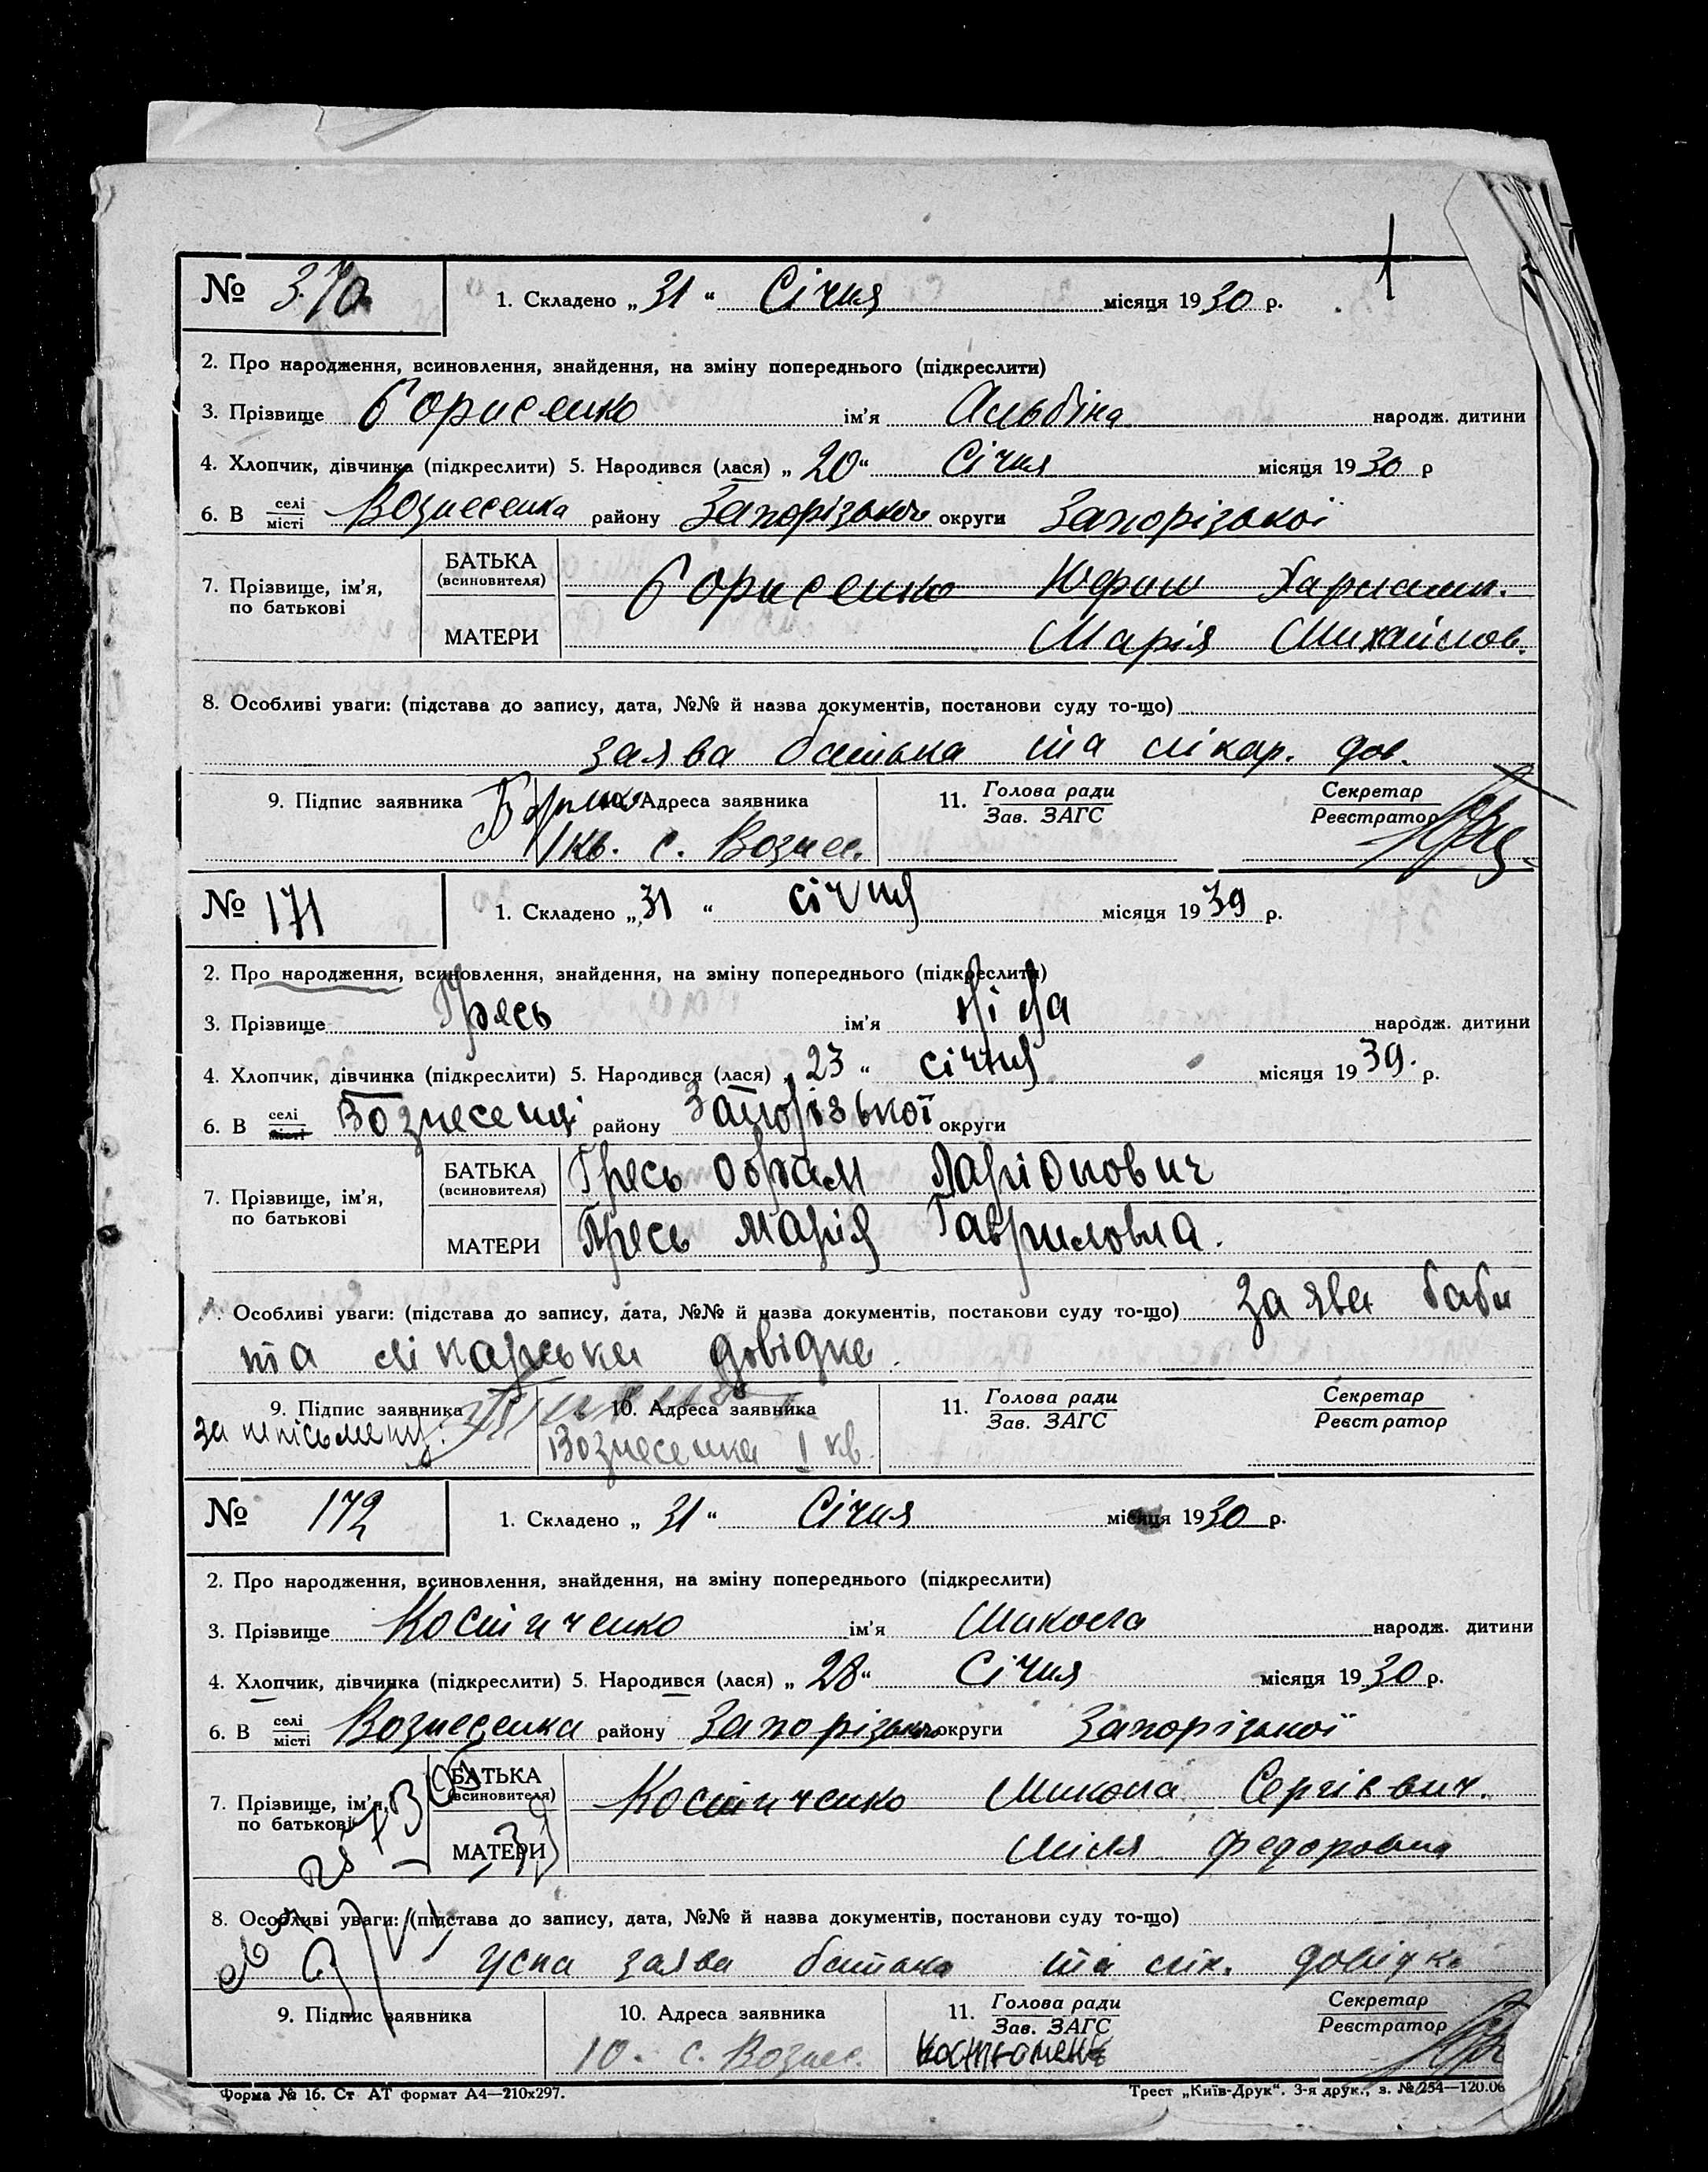 № 370 1. Складено „ 31 “ Січня місяця 1930 р.
2. Про народження, всиновлення, знайдення, на зміну попереднього (підкреслити)
3. Прізвище Борисенко ім'я Альбіна народж. дитини
4. Хлопчик, дівчинка (підкреслити) 5. Народився (лася) „ 20 “ Січня місяця 1930 р
6. В селі / місті Вознесенка району Запорізького округи Запорізької
7. Прізвище, ім'я, по батькові
БАТЬКА (всиновителя) Борисенко Юфим Харламп.
МАТЕРИ Марія Михайлов.
8. Особливі уваги: (підстава до запису, дата, №№ й назва документів, постанови суду то-що)
заява батька та лікар. дов.
9. Підпис заявника Адреса заявника 11. Голова ради / Зав. ЗАГС Секретар / Реєстратор
1 кв. с. Вознес.
№ 171 1. Складено „ 31 “ січня місяця 1939 р.
2. Про народження, всиновлення, знайдення, на зміну попереднього (підкреслити)
3. Прізвище Гресь ім'я Ліда народж. дитини
4. Хлопчик, дівчинка (підкреслити) 5. Народився (лася) „ 23 “ січня місяця 1939. р.
6. В селі / місті Вознесенці району Запорізької округи
7. Прізвище, ім'я, по батькові
БАТЬКА (всиновителя) Гресь Обрам Ларіонович
МАТЕРИ Гресь Марія Гавриловна.
Особливі уваги: (підстава до запису, дата, №№ й назва документів, постанови суду то-що) заява баби
та лікарська довідка.
9. Підпис заявника 10. Адреса заявника 11. Голова ради / Зав. ЗАГС Секретар / Реєстратор
Вознесенка I кв.
№ 172 1. Складено „ 31 “ Січня місяця 1930 р.
2. Про народження, всиновлення, знайдення, на зміну попереднього (підкреслити)
3. Прізвище Костиченко ім'я Микола народж. дитини
4. Хлопчик, дівчинка (підкреслити) 5. Народився (лася) „ 28 “ Січня місяця 1930 р.
6. В селі / місті Вознесенка району Запорізького округи Запорізької
7. Прізвище, ім'я, по батькові
БАТЬКА (всиновителя) Костиченко Микола Сергієвич.
МАТЕРИ Лміля Федоровна
8. Особливі уваги: (підстава до запису, дата, №№ й назва документів, постанови суду то-що)
Усна заява батька та лік. довідка
9. Підпис заявника 10. Адреса заявника 11. Голова ради / Зав. ЗАГС Секретар / Реєстратор
10. с. Вознес.
Форма № 16. Ст АТ формат А4—210х297. Трест „Київ-Друк“. 3-я друк., з. № 254—120.00